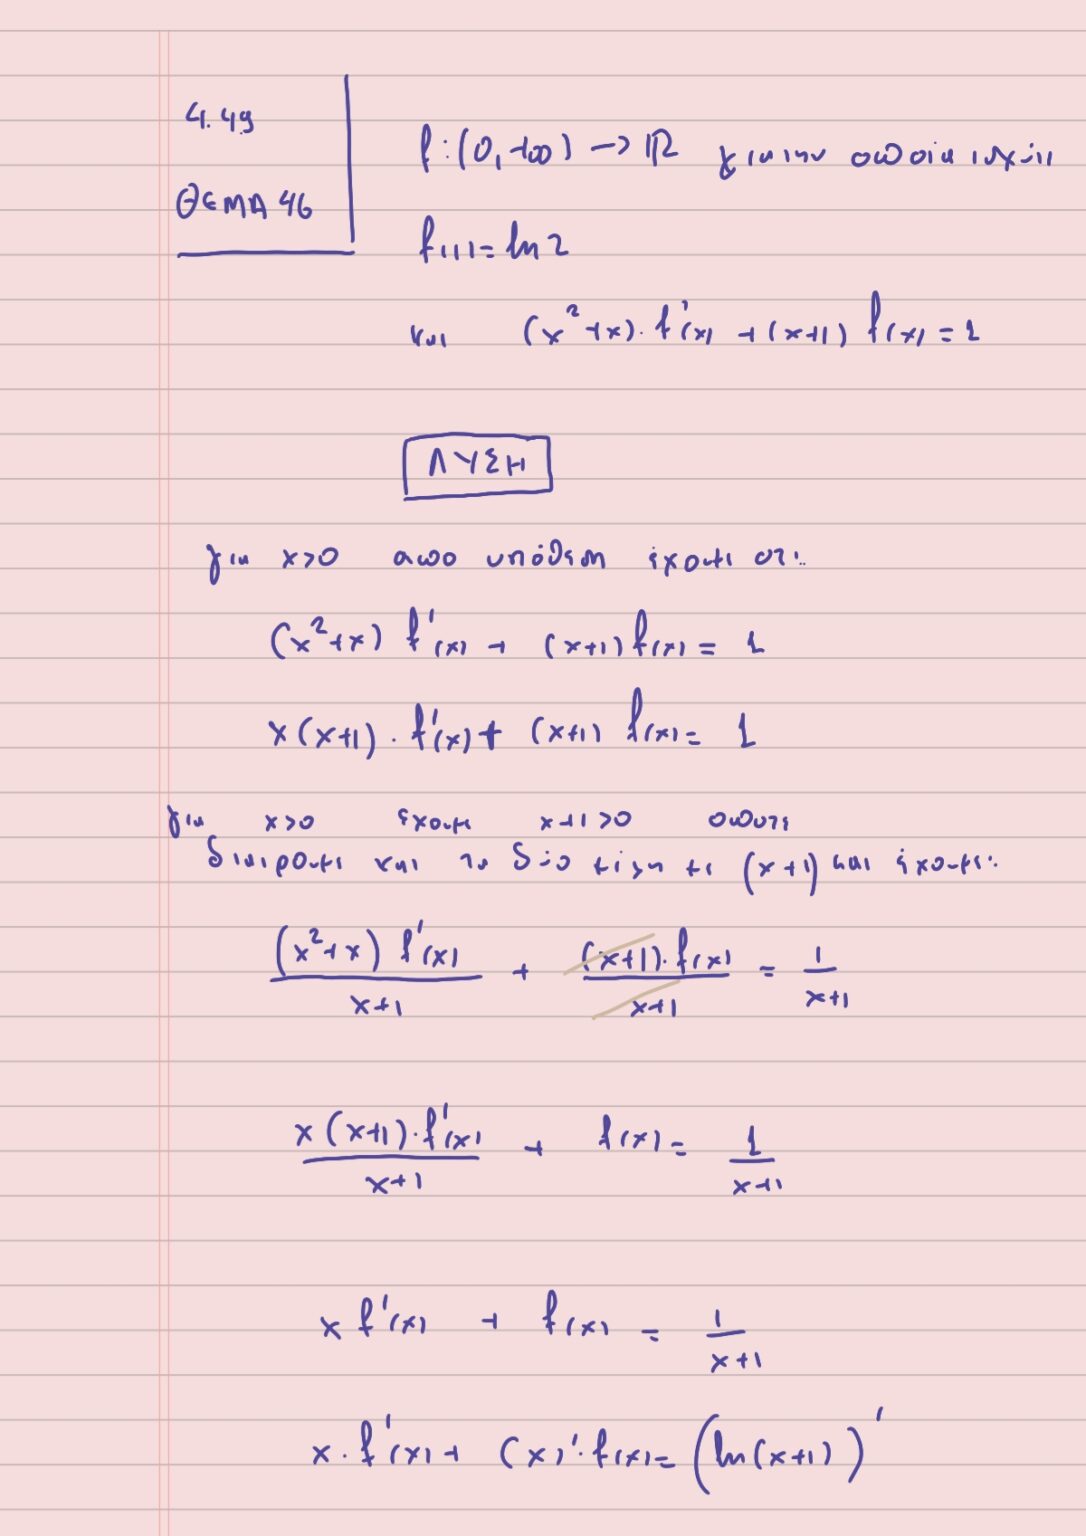 4.49
ΘΕΜΑ 46
f:(0,+∞) → ℝ για την οποία ισχύει
f(1) = ln2
και (x²+x)·f'(x) + (x+1) f(x) = 1
ΛΥΣΗ
για x>0 απο υπόθεση έχουμε οτι:
(x²+x) f'(x) + (x+1) f(x) = 1
x(x+1)·f'(x) + (x+1) f(x) = 1
για x>0 έχουμε x+1>0 οποτε
διαιρουμε και τα δύο μέλη με (x+1) και έχουμε:
(x²+x) f'(x)/(x+1) + (x+1)·f(x)/(x+1) = 1/(x+1)
x(x+1)·f'(x)/(x+1) + f(x) = 1/(x+1)
x f'(x) + f(x) = 1/(x+1)
x·f'(x) + (x)'·f(x) = (ln(x+1))'